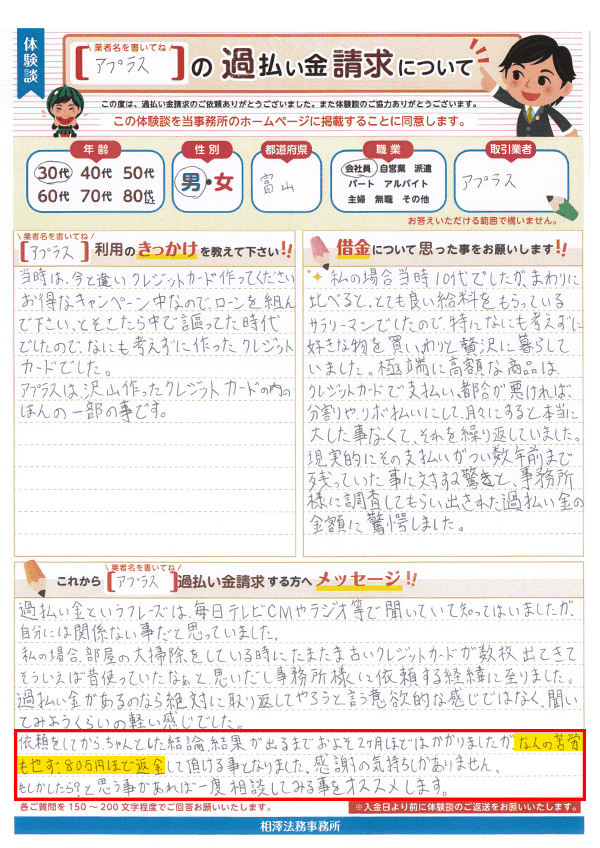 体験談
業者名を書いてね
[アプラス]の過払い金請求について
この度は、過払い金請求のご依頼ありがとうございました。また体験談のご協力ありがとうございます。
この体験談を当事務所のホームページに掲載することに同意します。
年齢
30代 40代 50代
60代 70代 80代以上
性別
男・女
都道府県
富山
職業
会社員 自営業 派遣
パート アルバイト
主婦 無職 その他
取引業者
アプラス
お答えいただける範囲で構いません。
業者名を書いてね
[アプラス]利用のきっかけを教えて下さい!!
当時は、今と違いクレジットカード作ってください
お得なキャンペーン中なので、ローンを組ん
で下さい、とそこたら中で謳ってた時代
でしたので、なにも考えずに作ったクレジット
カードでした。
アプラスは、沢山作ったクレジットカードの内の
ほんの一部の事です。
借金について思った事をお願いします!!
私の場合当時10代でしたが、まわりに
比べると、とても良い給料をもらっている
サラリーマンでしたので、特になにも考えずに
好きな物を買いわりと贅沢に暮らして
いました。極端に高額な商品は
クレジットカードで支払い、都合が悪ければ、
分割やリボ払いにして、月々にすると本当に
大した事なくて、それを繰り返していました。
現実的にその支払いがつい数年前まで
残っていた事に対する驚きと、事務所
様に調査してもらい出された過払い金の
金額に驚愕しました。
業者名を書いてね
これから[アプラス]過払い金請求する方へメッセージ!!
過払い金というフレーズは、毎日テレビCMやラジオ等で聞いていて知ってはいましたが、
自分には関係ない事だと思っていました。
私の場合、部屋の大掃除をしている時にたまたま古いクレジットカードが数枚出てきて
そういえば昔使っていたなぁと思いだし事務所様に依頼する経緯に至りました。
過払い金があるのなら絶対に取り返してやろうと言う意欲的な感じではなく、聞い
てみようくらいの軽い感じでした。
依頼をしてから、ちゃんとした結論、結果が出るまでおよそ2ヶ月ほどはかかりましたが、なんの苦労
もせず、80万円ほど返金して頂ける事となりました。感謝の気持ちしかありません。
もしかしたら?と思う事があれば一度相談してみる事をオススメします。
各ご質問を150~200文字程度でご回答お願いいたします。
※入金日より前に体験談のご返送をお願いいたします。
相澤法務事務所